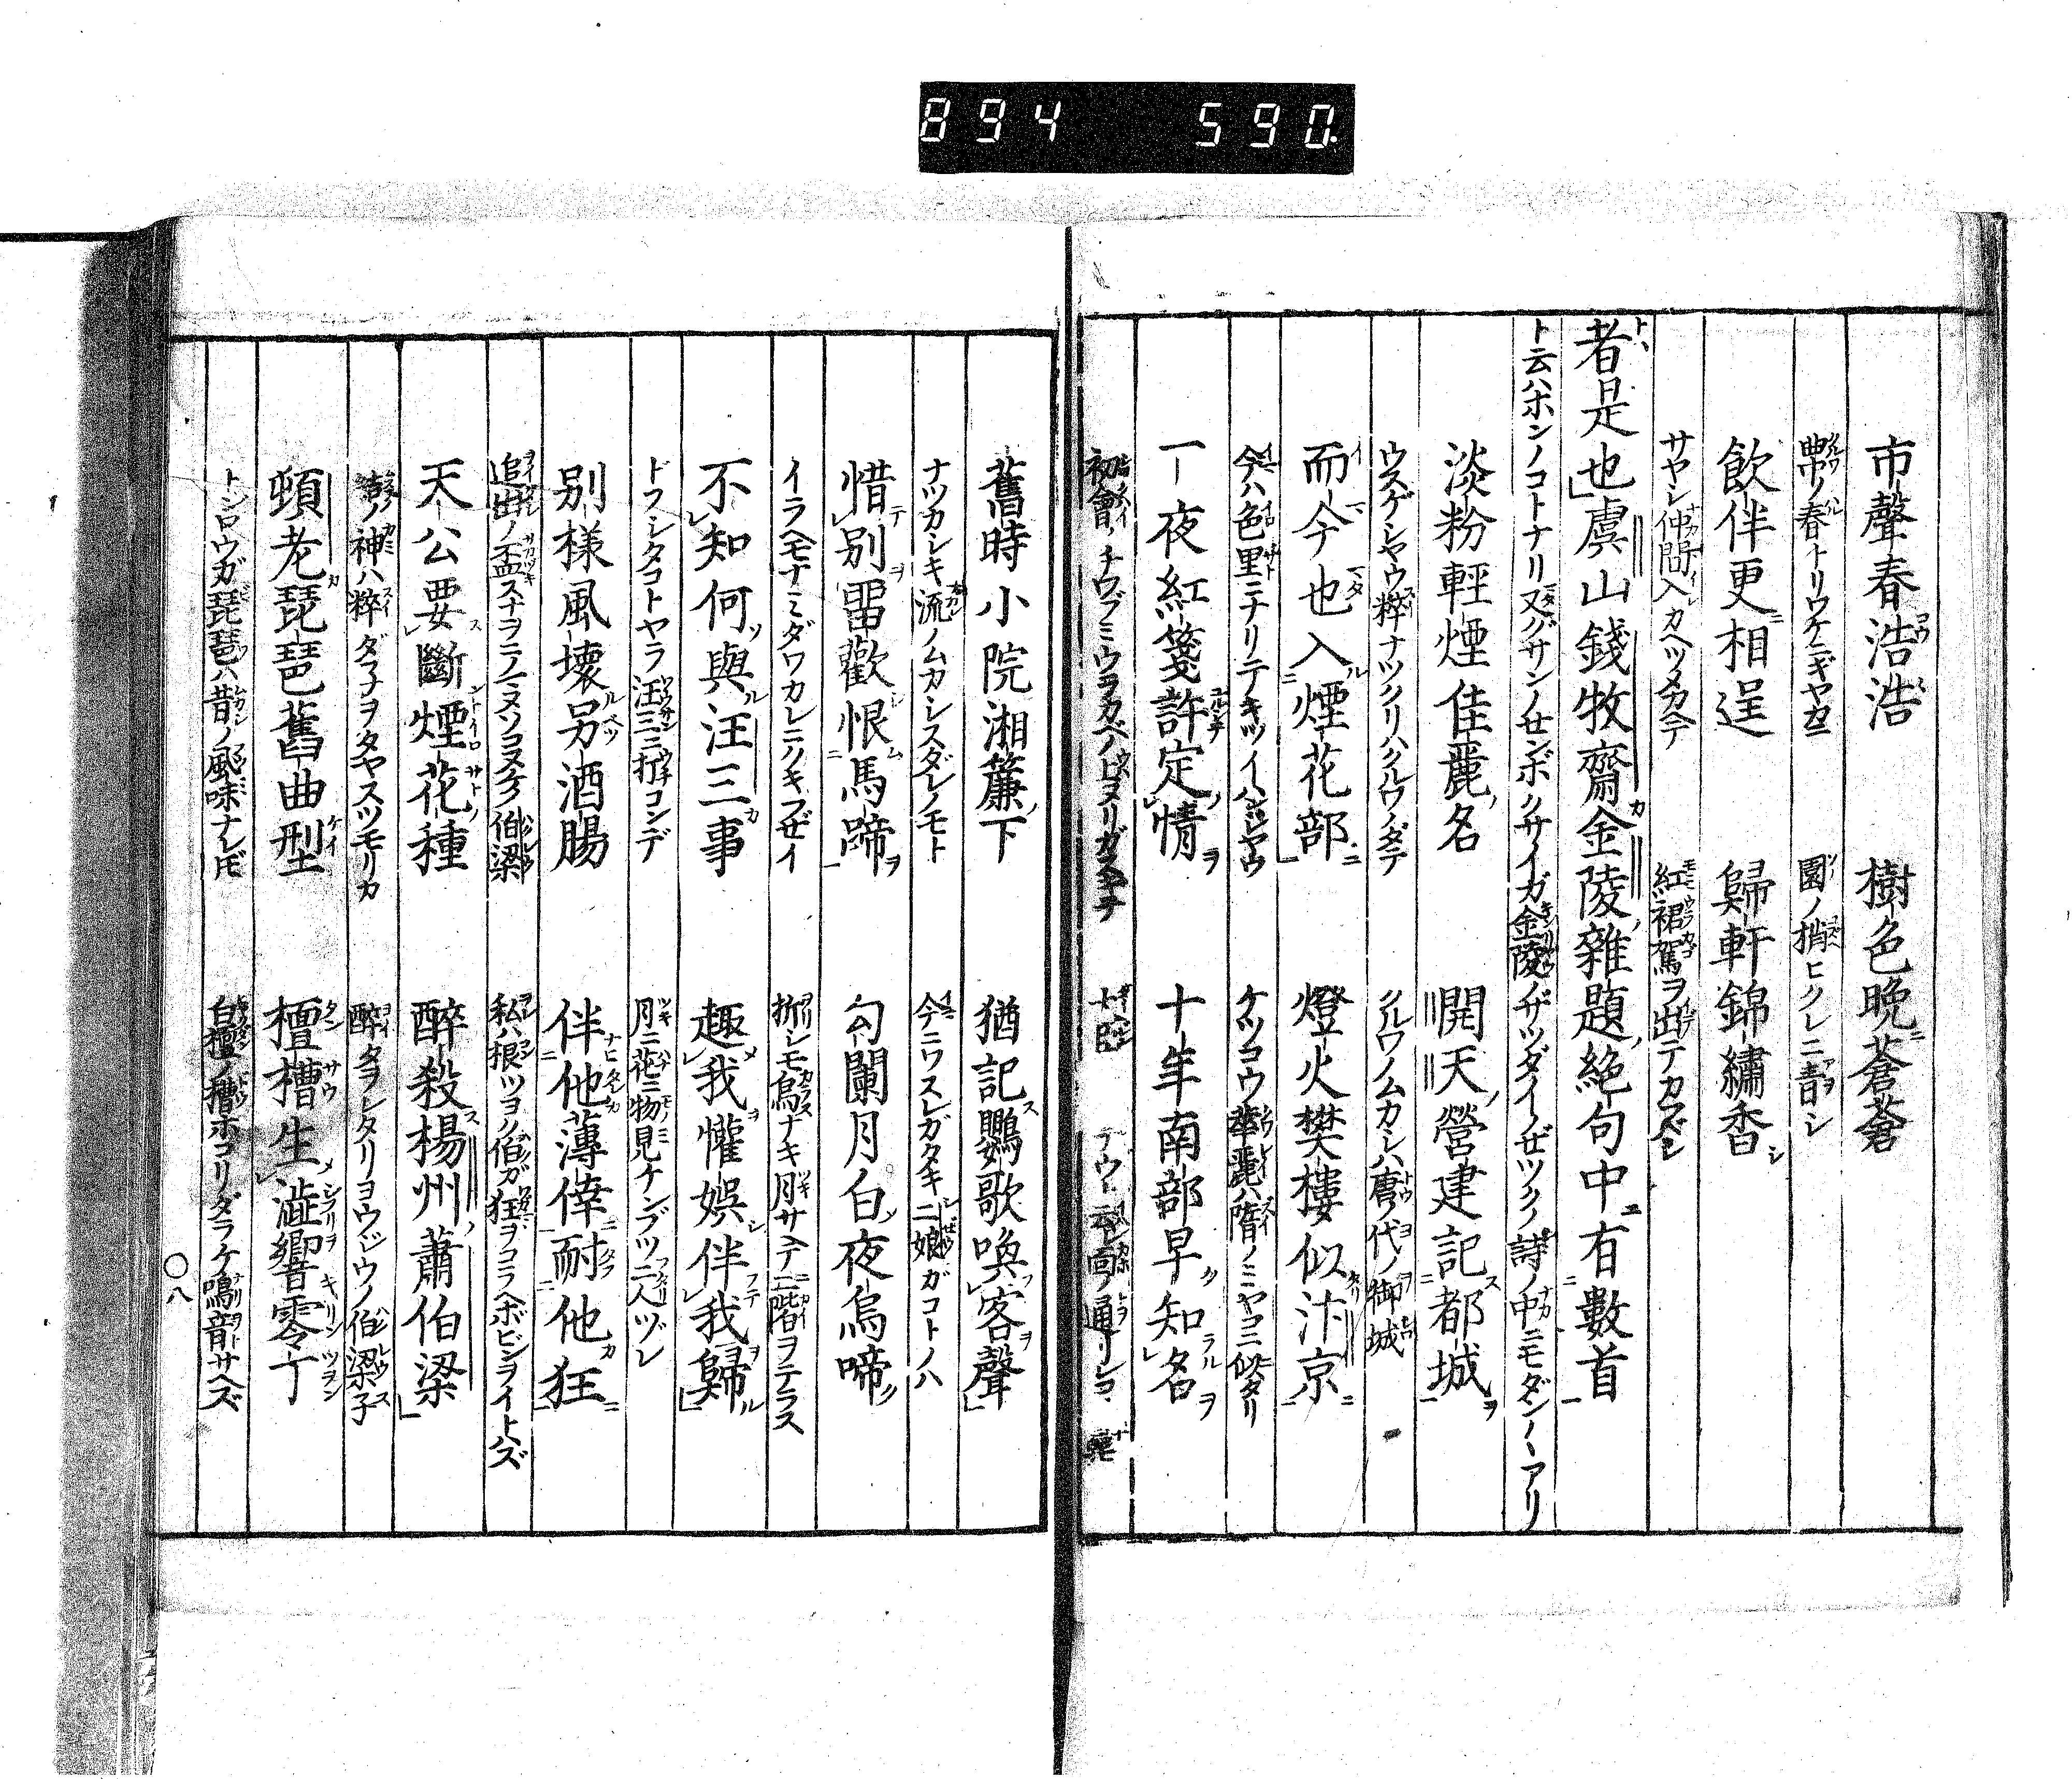 894 590
市聲春浩浩 樹色晩蒼蒼
飲伴更相逞 歸軒錦繡香
サヤシ仲間入カヘツメカケテ 紅裙駕ヲ出テカズシ
者是也虞山錢牧齋金陵雜題絶句中有數首
ト云ハホンノコトナリ又グサンノせンボクサイガ金陵ノザツダイノぜツクノ詩ノ中ニモダン〱アリ
淡粉輕煙佳麗名 開天營建記都城
ウスゲシヤウ粹ナツクリハクルワノダテ クルワノムカシハ唐ノ代ノ御城
而今也入煙花部 燈火樊樓似汴京
今ハ色里ニナリテキツイハンジヤウ ケツコウ華麗ハ隋ノミヤコニ似タリ
一夜紅箋許定情 十年南部早知名
舊時小院湘簾下 猶記鸚歌喚客聲
ナツカシキ流ノムカシスダレノモト 今ニワスレガタキ二娘ガコトノハ
惜別畱歡恨馬蹄 勾闌月白夜烏啼
イラヘモナミダワカレニノキフぜイ 折シモ烏ナキ月サヘテ二階ヲテラス
不知何與汪三事 趣我懽娯伴我歸
ドフシタコトヤラ汪三ニ打コンデ 月ニ花ニ物見ケンブツ二人ヅレ
別樣風懷另酒腸 伴他薄倖耐他狂
追出ノ盃スナヲニノミヌソコヌケノ伯梁 私ハ根ツヨノ伯ガ狂ヲコラヘボビンヲイトハズ
天公要斷煙花種 醉殺楊州蕭伯梁
神ハ粹ダ子ヲタヤスツモリカ 醉タヲレタリヨウジウノ伯梁子
頓老琵琶舊曲型 檀槽生澁響零丁
トンロウガ琵琶ハ昔ノ風味ナレ𪜈 白檀ノ槽ホコリダラケ鳴音サヘズ
〇八